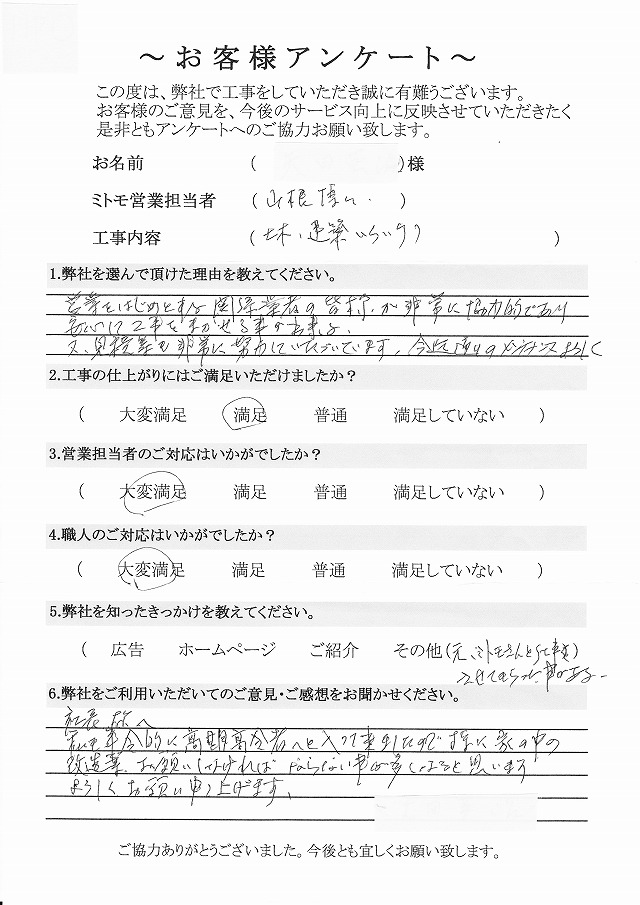 ～お客様アンケート～
この度は、弊社で工事をしていただき誠に有難うございます。
お客様のご意見を、今後のサービス向上に反映させていただきたく
是非ともアンケートへのご協力お願い致します。
お名前 ( )様
ミトモ営業担当者 (山根 )
工事内容 ( )
1.弊社を選んで頂けた理由を教えてください。
営業をはじめとする関係業者の皆様が非常に協力的であり
安心して工事をまかせる事が出来る。
又、見積等も非常に努力していただいています。今後のメンテナンスよろしく
2.工事の仕上がりにはご満足いただけましたか？
( 大変満足 満足 普通 満足していない )
3.営業担当者のご対応はいかがでしたか？
( 大変満足 満足 普通 満足していない )
4.職人のご対応はいかがでしたか？
( 大変満足 満足 普通 満足していない )
5.弊社を知ったきっかけを教えてください。
( 広告 ホームページ ご紹介 その他(元、ミトモさんと仕事)
させてもらった事がある
6.弊社をご利用いただいてのご意見・ご感想をお聞かせください。
社長 様へ
私も年令的に高齢者へと入って来ましたので 家の中の
改造等 お願いしなければならない事が多くなると思います
よろしくお願い申し上げます。
ご協力ありがとうございました。今後とも宜しくお願い致します。